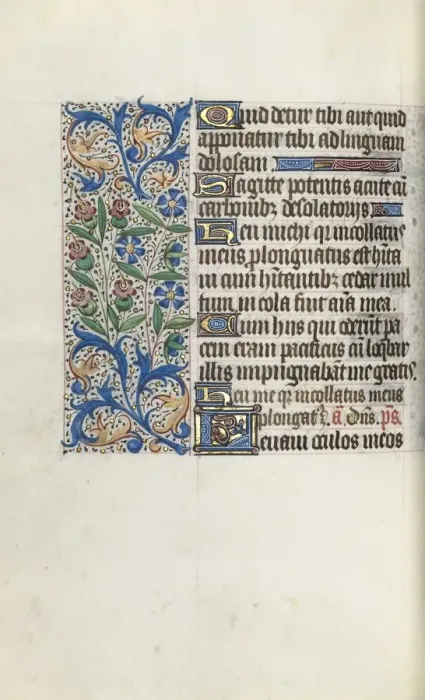 Quid detur tibi aut quid
apponatur tibi ad linguam
dolosam
Sagitte potentis acute cū
carbonibꝫ desolatorijs
Heu michi qꝛ incolatus
meus ꝓlongatus est hita
ui cum hītantibꝫ cedar mul
tum incola fuit aīa mea.
Cum hiis qui oderūt pa
cem eram pacificus cū loq̄bar
illis impugnabāt me gratis.
Heu me qꝛ incollatus meus
ꝓlongatꝰ ē ā. Dn̄s. ps.
Leuaui oculos meos